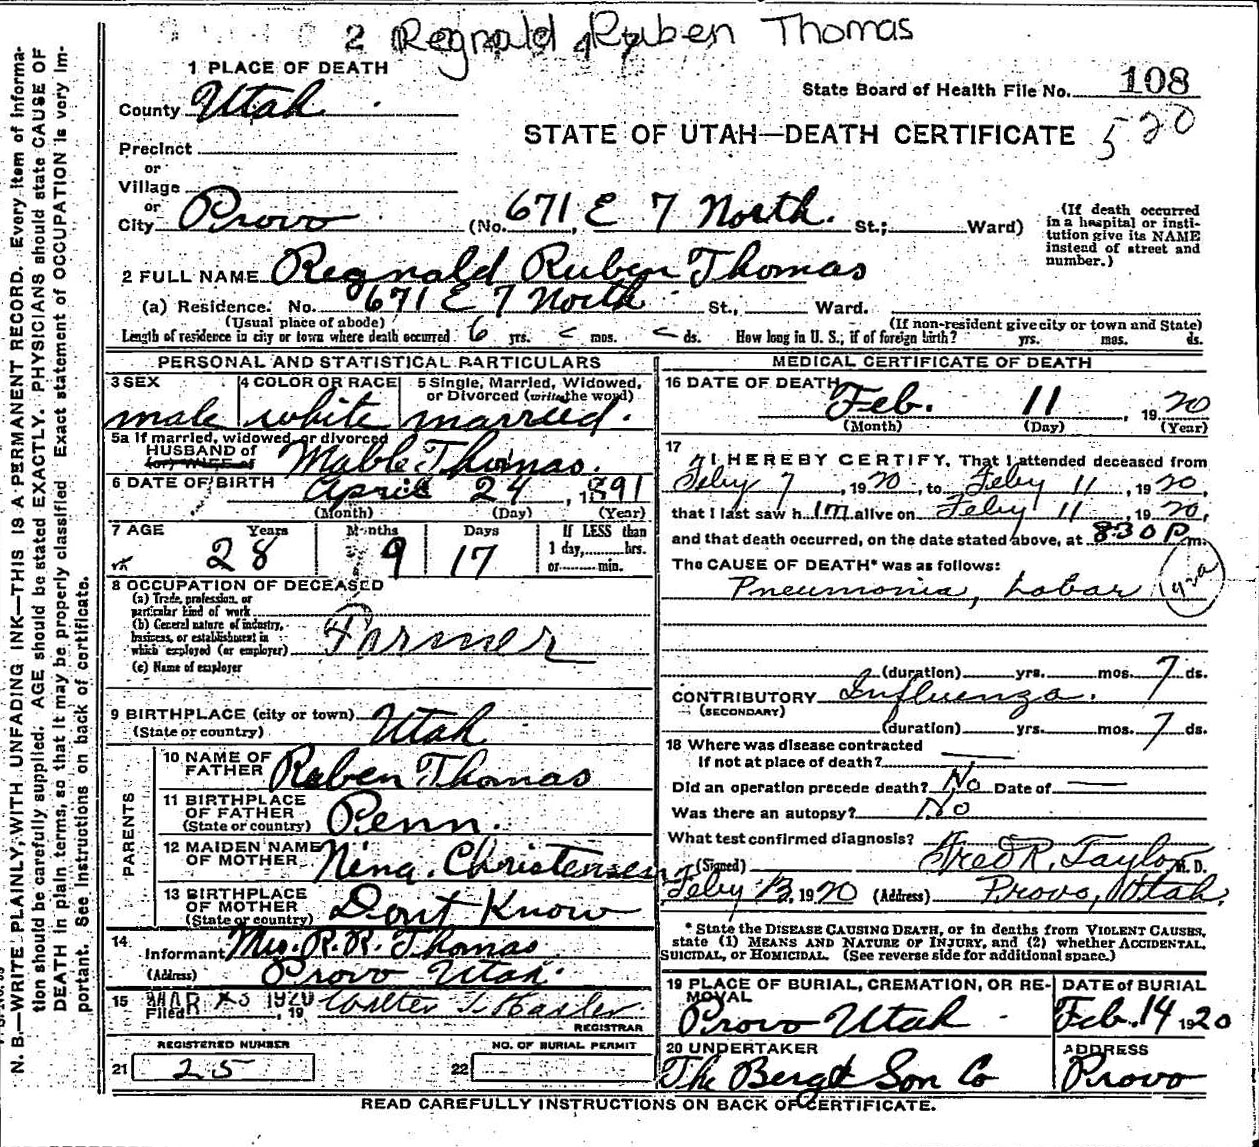 2 Regnald Ruben Thomas
1 PLACE OF DEATH
County Utah
State Board of Health File No. 108
STATE OF UTAH—DEATH CERTIFICATE 520
Precinct
or
Village
or
City Provo (No. 671 E 7 North. St.; Ward)
(If death occurred in a hospital or insti-
tution give its NAME
instead of street and
number.)
2 FULL NAME Regnald Ruben Thomas
(a) Residence. No. 671 E 7 North St., Ward.
(Usual place of abode) (If non-resident give city or town and State)
Length of residence in city or town where death occurred 6 yrs. mos. ds. How long in U. S., if of foreign birth? yrs. mos. ds.
PERSONAL AND STATISTICAL PARTICULARS
3 SEX 4 COLOR OR RACE 5 Single, Married, Widowed,
or Divorced (write the word)
male white married.
5a If married, widowed or divorced
HUSBAND of Mable Thomas.
(or) WIFE of
6 DATE OF BIRTH April 24, 1891
(Month) (Day) (Year)
7 AGE Years Months Days If LESS than
1 day, hrs.
28 9 17 or min.
8 OCCUPATION OF DECEASED
(a) Trade, profession, or
particular kind of work
(b) General nature of industry,
business, or establishment in
which employed (or employer) Farmer
(c) Name of employer
9 BIRTHPLACE (city or town) Utah
(State or country)
PARENTS
10 NAME OF
FATHER Ruben Thomas
11 BIRTHPLACE
OF FATHER Penn.
(State or country)
12 MAIDEN NAME
OF MOTHER Nina. Christensen
13 BIRTHPLACE
OF MOTHER Dont Know
(State or country)
14 Informant Mrs. R. R. Thomas
(Address) Provo Utah.
15 MAR 1920
Filed , 19 Walter T.
REGISTRAR
REGISTERED NUMBER NO. OF BURIAL PERMIT
21 25 22
MEDICAL CERTIFICATE OF DEATH
16 DATE OF DEATH Feb. 11, 1920
(Month) (Day) (Year)
17 I HEREBY CERTIFY, That I attended deceased from
Feby 7, 1920, to Feby 11, 1920,
that I last saw him alive on Feby 11, 1920,
and that death occurred, on the date stated above, at 8:30 P m.
The CAUSE OF DEATH* was as follows:
Pneumonia, Lobar
(duration) yrs. mos. 7 ds.
CONTRIBUTORY Influenza.
(SECONDARY)
(duration) yrs. mos. 7 ds.
18 Where was disease contracted
If not at place of death?
Did an operation precede death? No Date of
Was there an autopsy? No
What test confirmed diagnosis?
(Signed) Fred R. Taylor M. D.
Feby 13, 1920 (Address) Provo, Utah.
* State the DISEASE CAUSING DEATH, or in deaths from VIOLENT CAUSES,
state (1) MEANS AND NATURE OF INJURY, and (2) whether ACCIDENTAL,
SUICIDAL, or HOMICIDAL. (See reverse side for additional space.)
19 PLACE OF BURIAL, CREMATION, OR RE-
MOVAL
Provo Utah
DATE of BURIAL
Feb. 14 1920
20 UNDERTAKER
The Berg & Son Co
ADDRESS
Provo
READ CAREFULLY INSTRUCTIONS ON BACK OF CERTIFICATE.
N. B.—WRITE PLAINLY, WITH UNFADING INK—THIS IS A PERMANENT RECORD. Every item of informa-
tion should be carefully supplied. AGE should be stated EXACTLY. PHYSICIANS should state CAUSE OF
DEATH in plain terms, so that it may be properly classified. Exact statement of OCCUPATION is very im-
portant. See instructions on back of certificate.